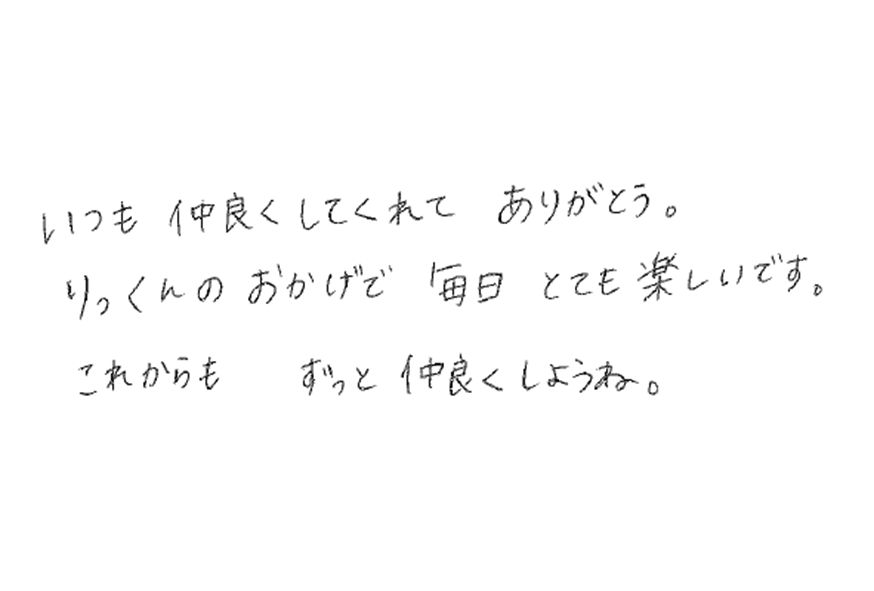 いつも 仲良くしてくれて ありがとう。
りっくんの おかげで 毎日 とても楽しいです。
これからも ずっと 仲良くしようね。